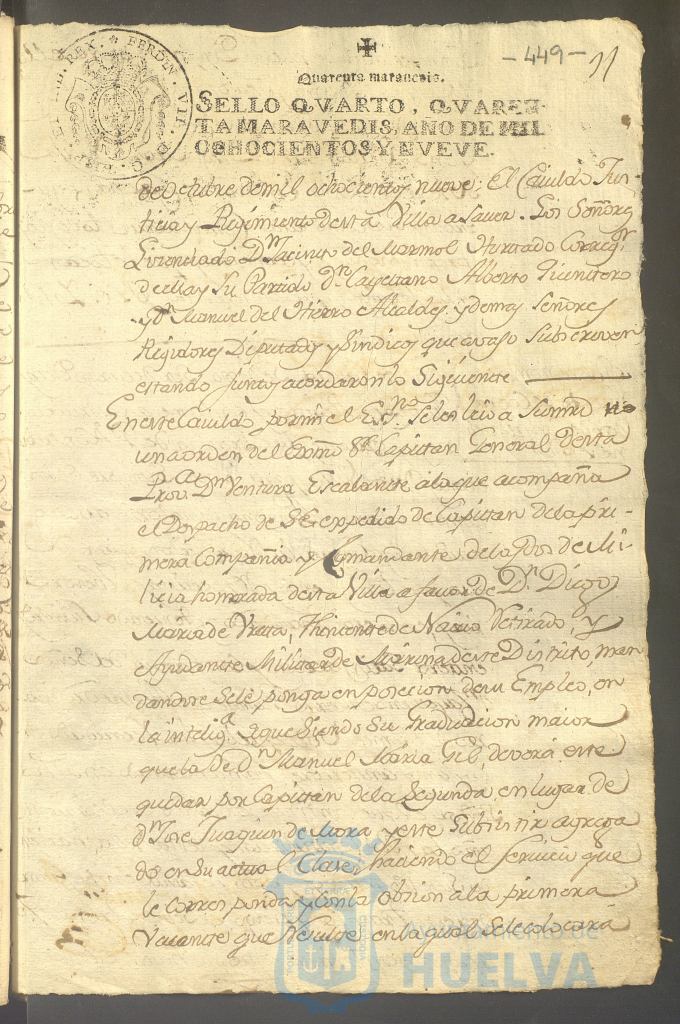 - 449 - 11
FERDIN. VII. D. G. HISP. ET IND. REX.
Quarenta maravedis.
SELLO QVARTO, QVAREN-
TA MARAVEDIS, AÑO DE MIL
OCHOCIENTOS Y NVEVE.
de Octubre de mil ochocientos nueve; El Cavildo Jus-
ticia y Regimiento de esta Villa a saver. Los Señores
Lizenciado Dn Jacinto del Marmol Hurtado Corregor
de ella y su Partido Dn Cayettano Alberto
y Dn Manuel del Hierro Alcaldes, y demas Señores
Regidores Diputados y Sindicos que avajo Subscriven
estando Juntos acordaron lo Siguiente
En este Cavildo, por mi el Esno se les leio a Sumrd
una orden del Exmo Sr Capitan General de esta
Prova Dn Ventura Escalante a la que acompaña
el Despacho de S.E. expedido de Capitan de la pri-
mera Compañia y Comandante de las dos de Mi-
licia honrrada de esta Villa a favor de Dn Diego
Maria de Vrata, Theniente de Navio Retirado, y
Ayudante Militar de Marina de este Distrito, man
dandose se le ponga en posecion de su Empleo, en
la inteliga que siendo Su Graduacion maior
que la de Dn Manuel Maria Gil, deverá este
quedar por Capittan de la Segunda, en lugar de
Dn Jose Juaquin de Mora y este Subsistir agrega
do en su actual Clase, haciendo el Servicio que
le corresponda y con la obcion a la primera
Vacante que Resulte en la qual se le colocará
Ayuntamiento de
HUELVA